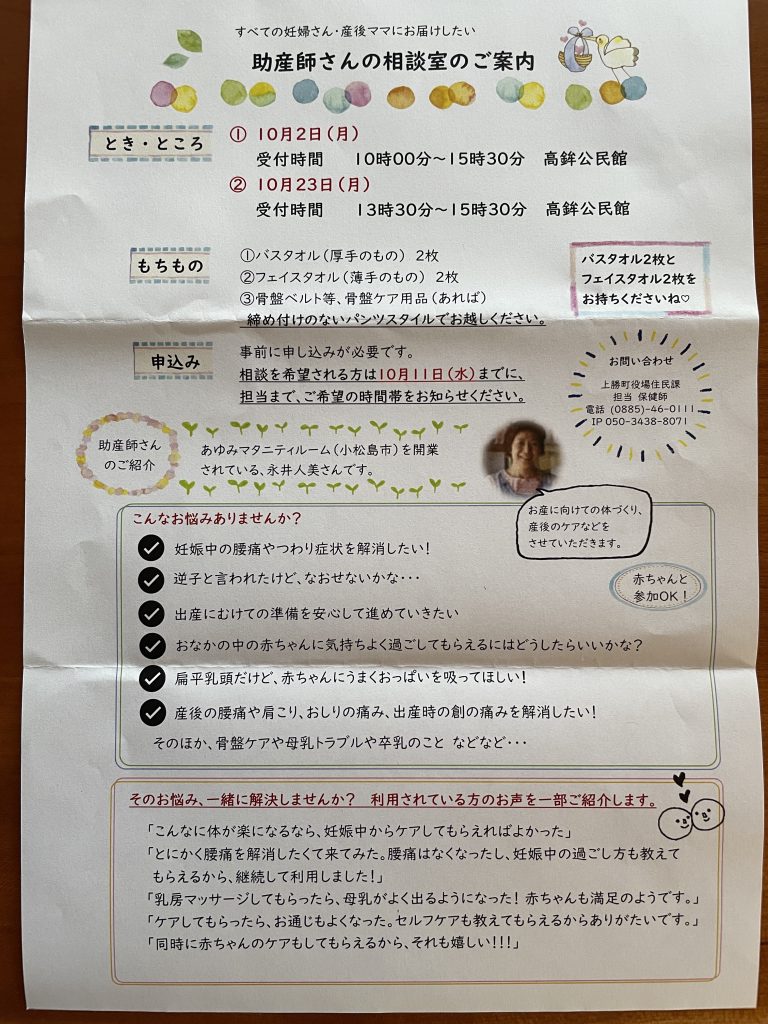 すべての妊婦さん・産後ママにお届けしたい
助産師さんの相談室のご案内
とき・ところ
① 10月2日(月)
受付時間 10時00分~15時30分 高鉾公民館
② 10月23日(月)
受付時間 13時30分~15時30分 高鉾公民館
もちもの
①バスタオル(厚手のもの) 2枚
②フェイスタオル(薄手のもの) 2枚
③骨盤ベルト等、骨盤ケア用品(あれば)
締め付けのないパンツスタイルでお越しください。
バスタオル2枚と
フェイスタオル2枚を
お持ちくださいね♡
申込み
事前に申し込みが必要です。
相談を希望される方は10月11日(水)までに、
担当まで、ご希望の時間帯をお知らせください。
お問い合わせ
上勝町役場住民課
担当 保健師
電話 (0885)-46-0111
IP 050-3438-8071
助産師さん
のご紹介
あゆみマタニティルーム(小松島市)を開業
されている、永井人美さんです。
お産に向けての体づくり、
産後のケアなどを
させていただきます。
こんなお悩みありませんか?
妊娠中の腰痛やつわり症状を解消したい!
逆子と言われたけど、なおせないかな・・・
赤ちゃんと
参加OK!
出産にむけての準備を安心して進めていきたい
おなかの中の赤ちゃんに気持ちよく過ごしてもらえるにはどうしたらいいかな?
扁平乳頭だけど、赤ちゃんにうまくおっぱいを吸ってほしい!
産後の腰痛や肩こり、おしりの痛み、出産時の創の痛みを解消したい!
そのほか、骨盤ケアや母乳トラブルや卒乳のこと などなど・・・
そのお悩み、一緒に解決しませんか? 利用されている方のお声を一部ご紹介します。
「こんなに体が楽になるなら、妊娠中からケアしてもらえればよかった」
「とにかく腰痛を解消したくて来てみた。腰痛はなくなったし、妊娠中の過ごし方も教えて
もらえるから、継続して利用しました!」
「乳房マッサージしてもらったら、母乳がよく出るようになった! 赤ちゃんも満足のようです。」
「ケアしてもらったら、お通じもよくなった。セルフケアも教えてもらえるからありがたいです。」
「同時に赤ちゃんのケアもしてもらえるから、それも嬉しい!!!」